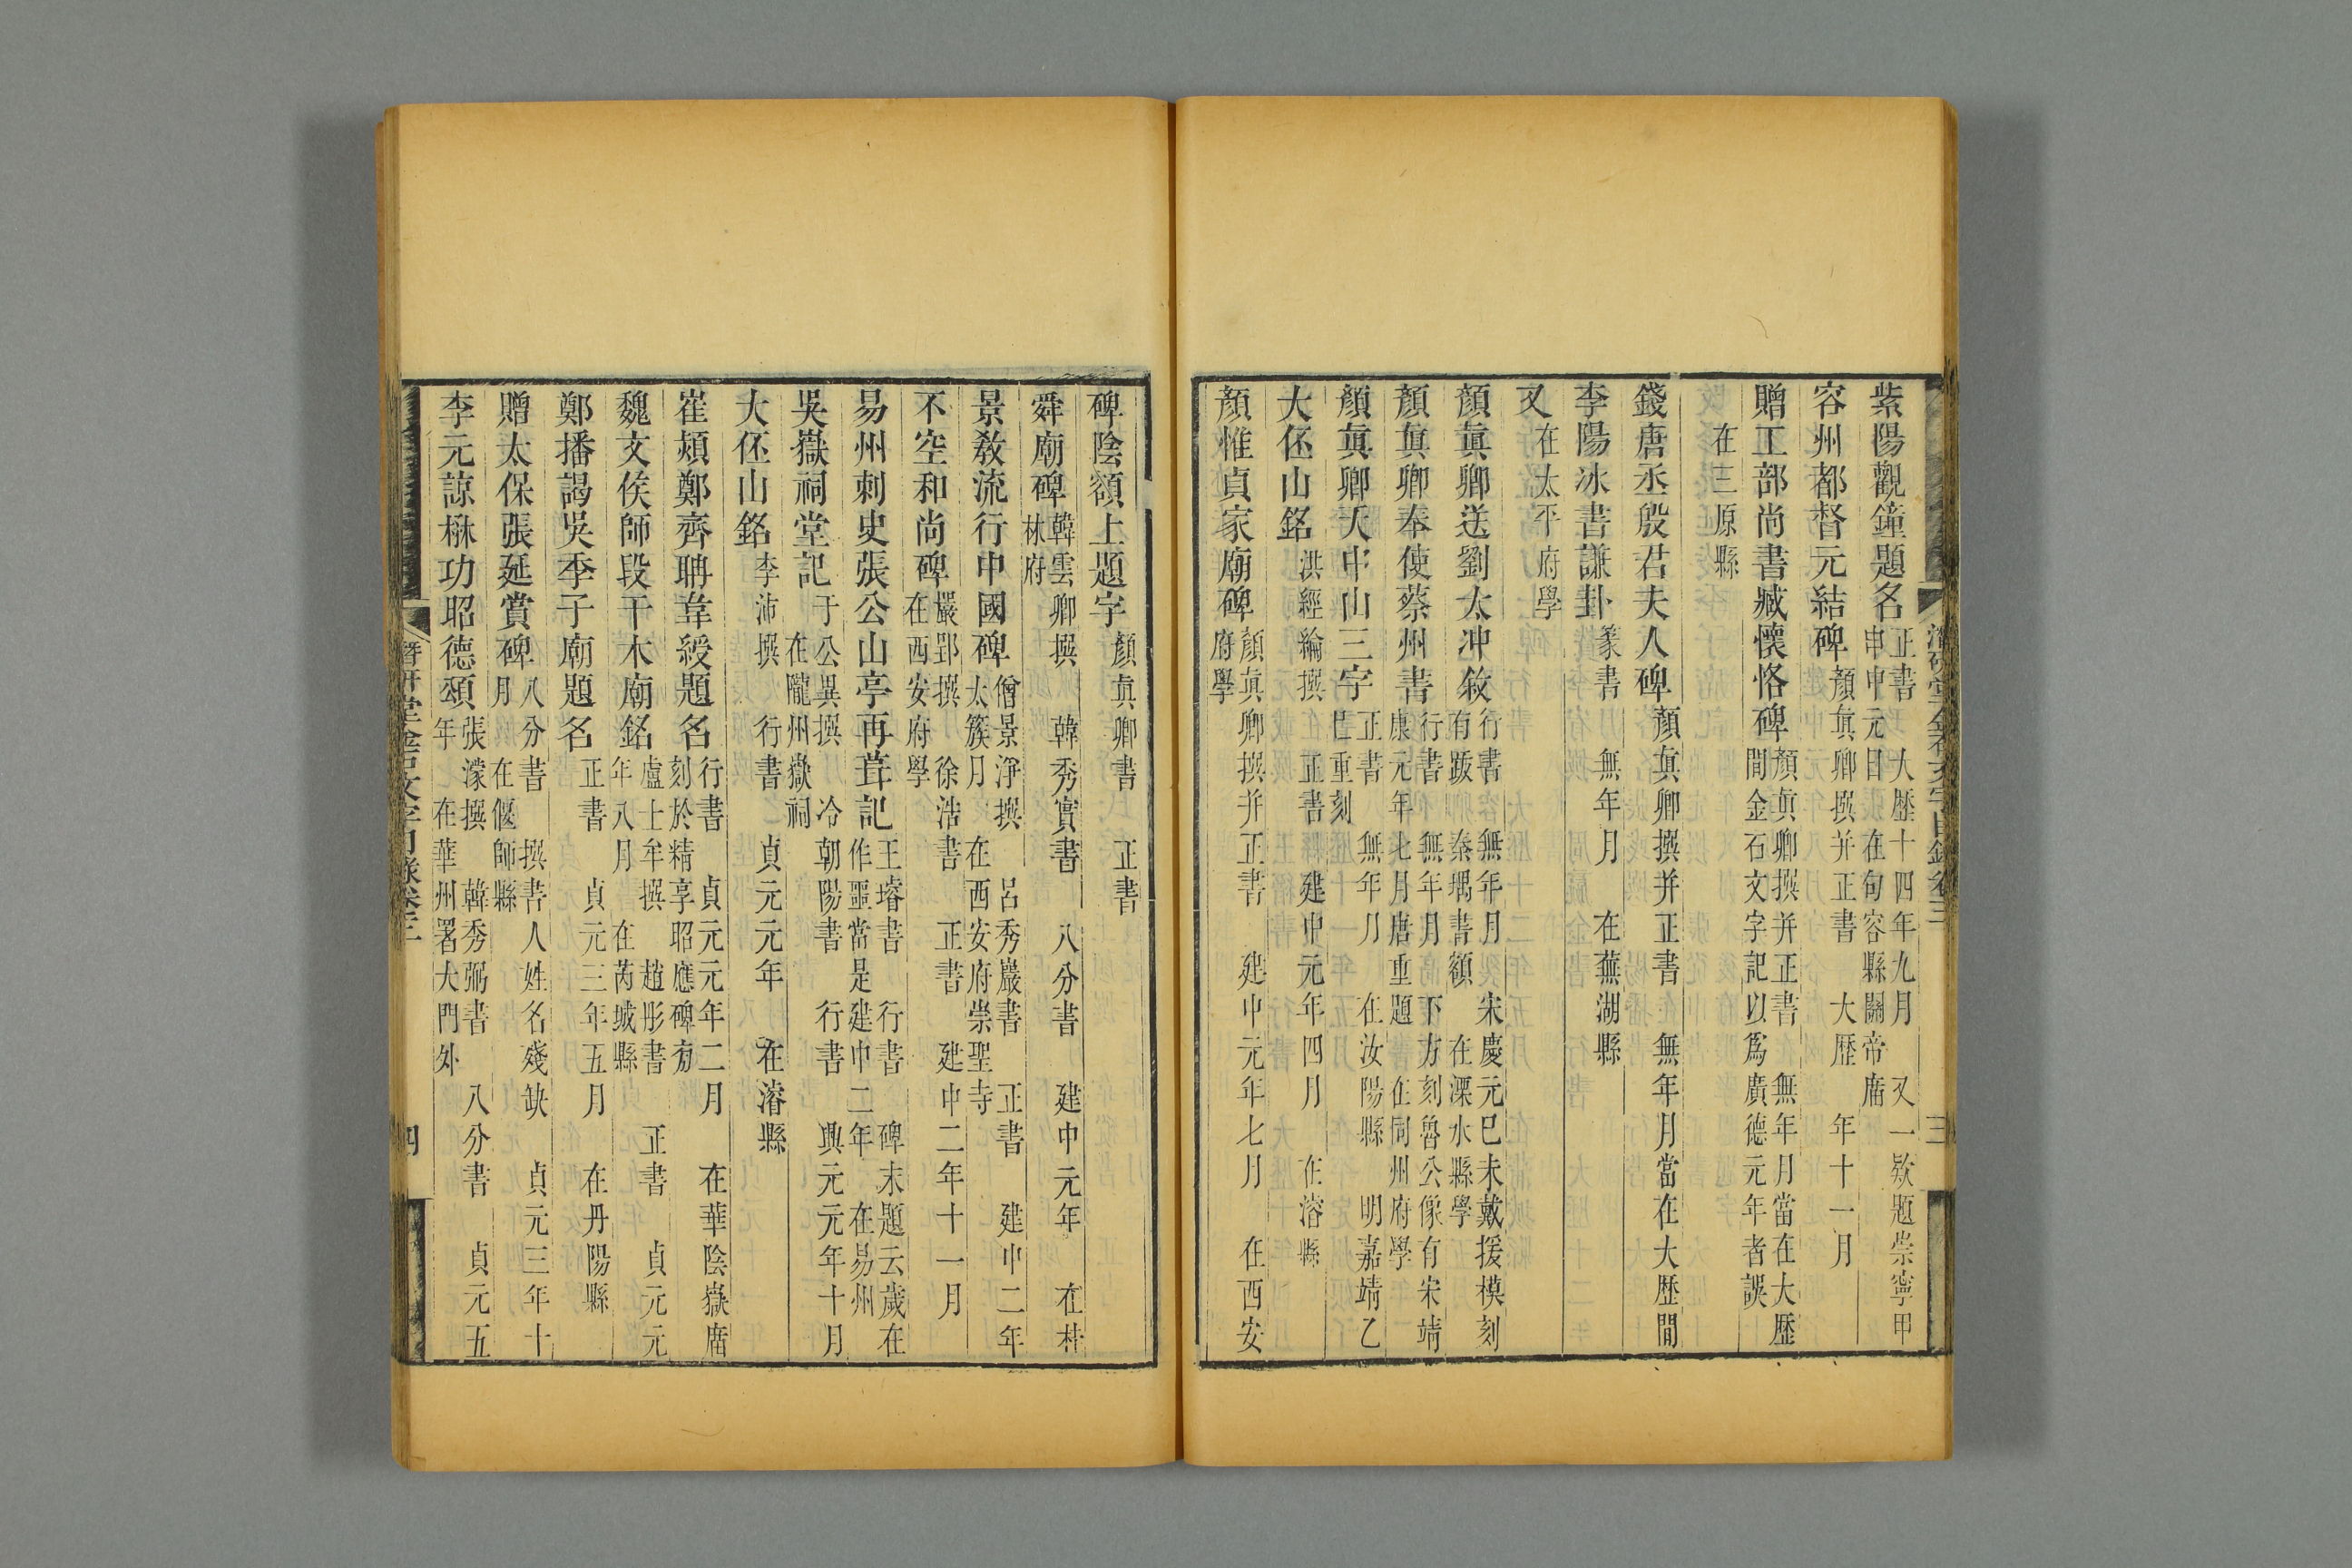 紫陽觀鐘題名 正書 大歷十四年九月 又一欵題崇寧甲申中元日 在句容縣關帝庿
容州都督元結碑 顏眞卿撰并正書 大歷 年十一月
贈工部尚書臧懷恪碑 顏眞卿撰并正書 無年月當在大歷間金石文字記以爲廣德元年者誤
在三原縣
錢唐丞殷君夫人碑 顏眞卿撰并正書 無年月當在大歷間
李陽冰書謙卦 篆書 無年月 在蕪湖縣
又 在太平府學
顏眞卿送劉太冲敘 行書 無年月 宋慶元己未戴援模刻有跋 秦堣書額 在溧水縣學
顏眞卿奉使蔡州書 行書 無年月 下方刻魯公像有宋靖康元年七月唐重題 在同州府學
顏眞卿天中山三字 正書 無年月 在汝陽縣 明嘉靖乙巳重刻
大伾山銘 洪經綸撰 正書 建中元年四月 在濬縣
顏惟貞家廟碑 顏眞卿撰并正書 建中元年七月 在西安府學
潛研堂金石文字目錄卷三 三
碑陰額上題字 顏眞卿書 正書
舜廟碑 韓雲卿撰 韓秀實書 八分書 建中元年 在桂林府
景敎流行中國碑 僧景淨撰 呂秀巖書 正書 建中二年太簇月 在西安府崇聖寺
不空和尚碑 嚴郢撰 徐浩書 正書 建中二年十一月在西安府學
易州刺史張公山亭再葺記 王璿書 行書 碑末題云歲在作噩當是建中二年 在易州
吳嶽祠堂記 于公異撰 冷朝陽書 行書 興元元年十月在隴州嶽祠
大伾山銘 李沛撰 行書 貞元元年 在濬縣
崔頍鄭齊聃韋綬題名 行書 貞元元年二月 在華陰嶽庿刻於精享昭應碑旁
魏文侯師段干木廟銘 盧士牟撰 趙彤書 正書 貞元元年八月 在芮城縣
鄭播謁吳季子廟題名 正書 貞元三年五月 在丹陽縣
贈太保張延賞碑 八分書 撰書人姓名殘缺 貞元三年十月 在偃師縣
李元諒楙功昭德頌 張濛撰 韓秀弼書 八分書 貞元五年 在華州署大門外
潛研堂金石文字目錄卷三 四